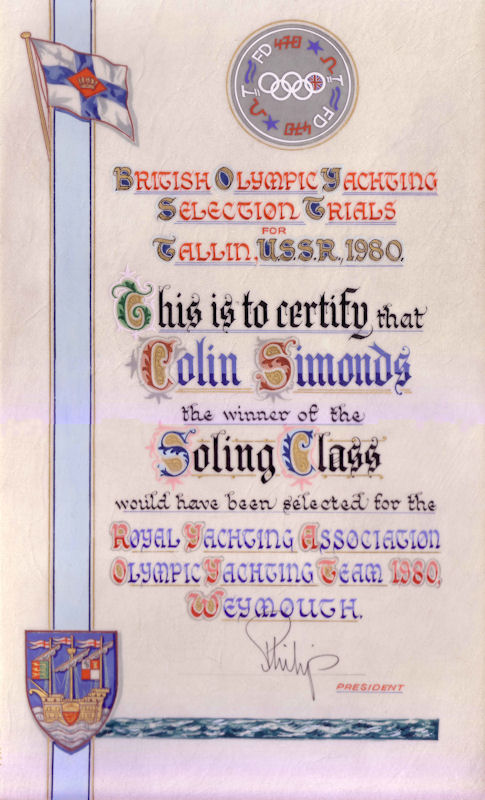 FD 470
FD
470
BRITISH OLYMPIC YACHTING
SELECTION TRIALS
FOR
TALLIN, U.S.S.R., 1980.
This is to certify that
Colin Simonds
the winner of the
Soling Class
would have been selected for the
ROYAL YACHTING ASSOCIATION
OLYMPIC YACHTING TEAM 1980,
WEYMOUTH.
Philip
PRESIDENT